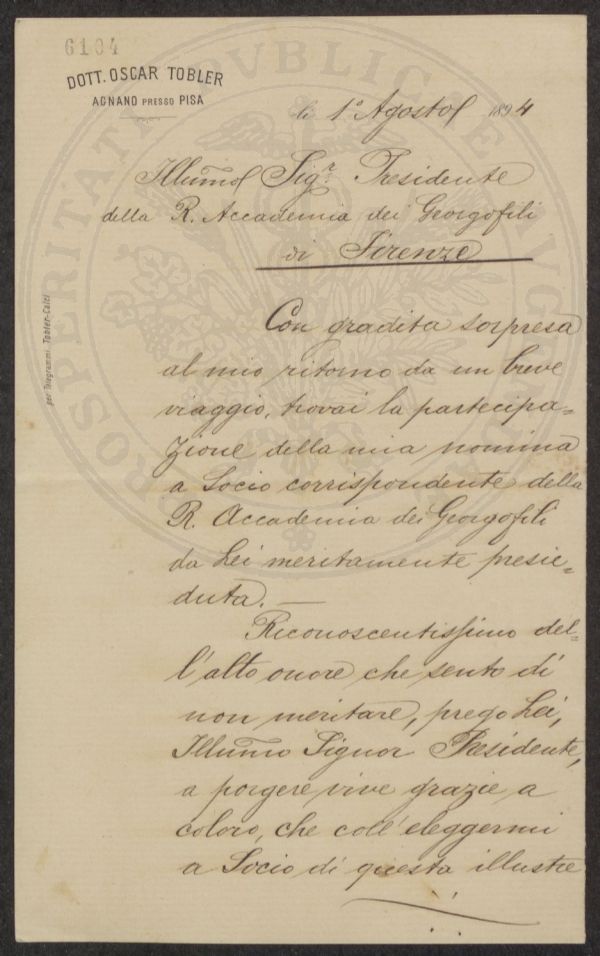 6104
DOTT. OSCAR TOBLER
AGNANO PRESSO PISA
li 1º Agosto 1894
Illumo Sigr. Presidente
della R. Accademia dei Georgofili
di Firenze
per Telegrammi: Tobler-Calci
Con gradita sorpresa
al mio ritorno da un breve
viaggio, trovai la partecipa=
zione della mia nomina
a Socio corrispondente della
R. Accademia dei Georgofili
da Lei meritamente presie=
duta. —
Riconoscentissimo del=
l'alto onore che sento di
non meritare, prego Lei,
Illumo Signor Presidente,
a porgere vive grazie a
coloro, che coll'eleggermi
a Socio di questa illustre
PROSPERITATI PVBLICAE